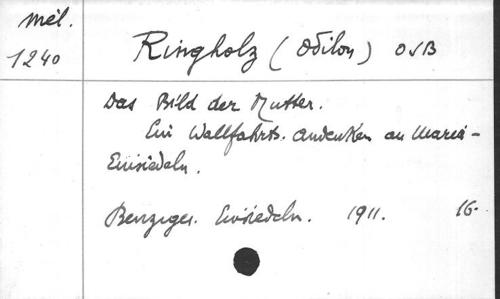 Mél.
1240
Ringholz (Odilon) OSB
Das Bild der Mutter.
Ein Wallfahrts-andenken an Maria-
Einsiedeln.
Benziger. Einsiedeln. 1911. 16-